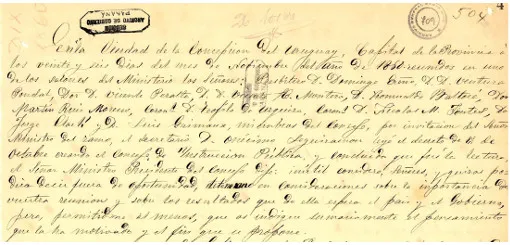 ARCHIVO DE GOBIERNO
PARANÁ
26 Nov
504
En la Ciudad de la Concepcion del Uruguay, Capital de la Provincia á
los veinte y seis dias del mes de Noviembre del año de reunidos en uno
de los salones del Ministerio los Señores: Presbitero D. Domingo D. D. Ventura
Pondal, Dor D. Vicente Peralta, D. D. H. Martinez, D. Honorato
Martin Ruiz Moreno, Coronl D. Teofilo de Urquiza, Coronl D. Nicolas M. Fontes, D.
Jorge Clark y D. Luis Grimaux miembros del Consejo, por invitacion del Señor
Ministro del ramo, el secretario D. Onésimo Leguizamon leyó el decreto de 11 de
Octubre creando el Consejo de Instruccion Publica, y concluida que fué la lectura
el Señor Ministro Presidente del Consejo dijo: inútil considero, Señores, y quizá por
demás fuera de oportunidad, en consideraciones sobre la importancia de
vuestra reunion y sobre los resultados que de ella espera el pais y el Gobierno,
pero, permitidme al menos, que os indique sumariamente el pensamiento
que la ha motivado y el fin que se propone.